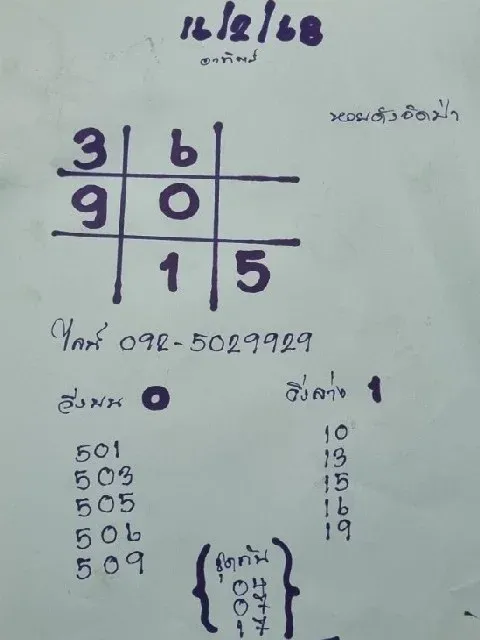 16/2/68
อาทิตย์
หวยดังจัดป๋า
3 6
9 0
1 5
ไลน์ 092-5029929
วิ่งบน 0
501
503
505
506
509
วิ่งล่าง 1
10
13
15
16
19
ชุดกัน
07
17